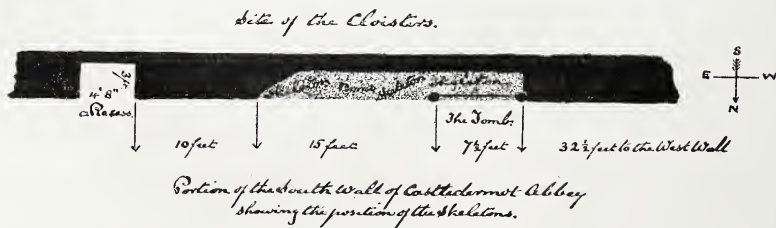 Site of the Cloisters.
S
E W
N
3 ft.
4' 8"
Recess.
Skeleton
The Tomb.
10 feet
15 feet
7½ feet
32½ feet to the West Wall
Portion of the South Wall of Castledermot Abbey
showing the position of the Skeletons.